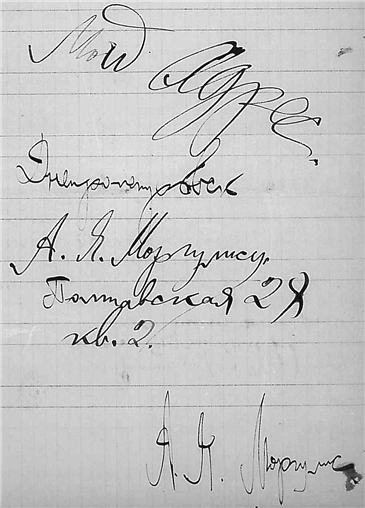 Мой
Адрес.
Днепропетровск
А. Я. Моргулису.
Полтавская 28
кв. 2.
А. Я. Моргулис